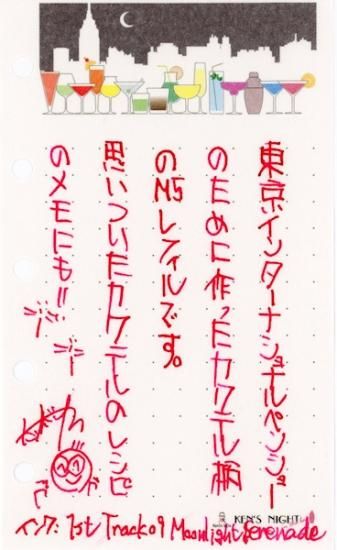 東京インターナショナルペンショー
のために作ったカクテル柄
のM5レフィルです。
思いついたカクテルのレシピ
のメモにも!!
わははは
KEN'S NIGHT
インク: 1st Track09 Moonlight Serenade